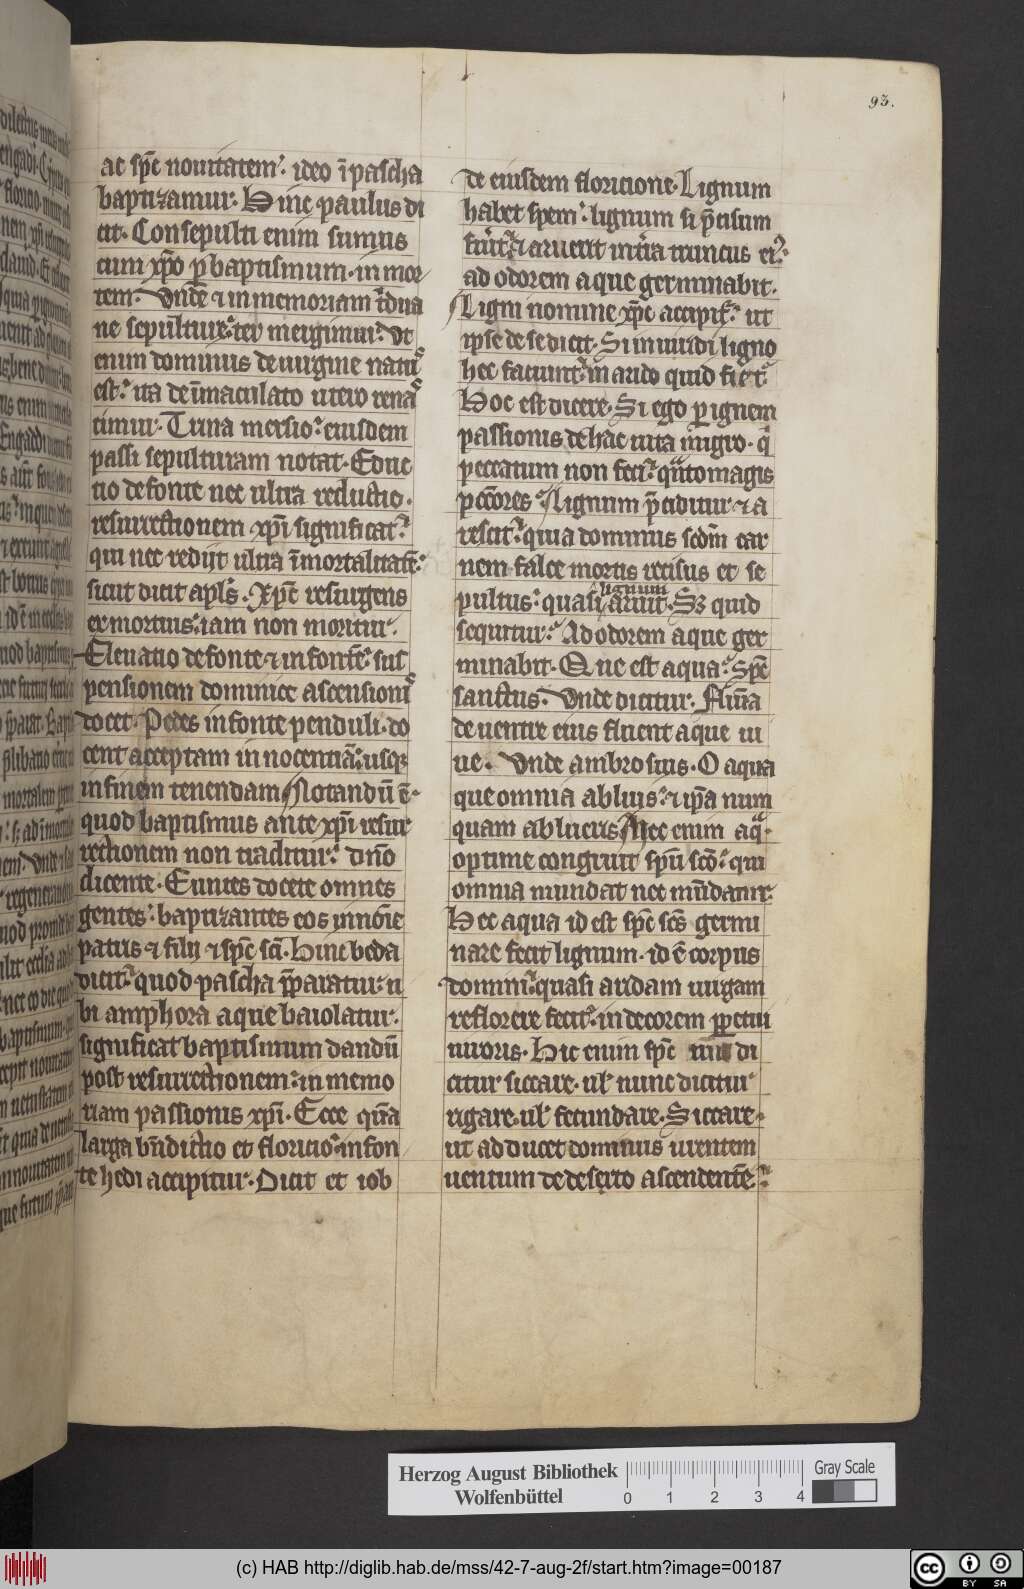 93.
ac spc̄ nouitatem. ideo ī pascha
baptizamur. Hinc paulus di
cit. Consepulti enim sumus
cum xp̄o p̱ baptismum. in mor
tem. Vnde ⁊ in memoriam tͥdua
ne sepulture. ter mergimur. Vt
enim dominus de uirgine natus
est. ita de īmaculato utero rena
cimur. Trina mersio. eiusdem
passi sepulturam notat. Educ
tio de fonte nec ultra reductio.
resurrectionem xp̄i significat.
qui nec redijt ultra ī mortalitatē.
sicut dicit apl̄s. Xp̄c resurgens
ex mortuis. iam non moritur.
Eleuatio de fonte ⁊ in fontē. sus
pensionem dominice ascensionis
docet. Pedes in fonte penduli. do
cent acceptam innocentiā. usqꝫ
in finem tenendam. Notandū ē.
quod baptismus ante xp̄i resur
rectionem non traditur. dn̄o
dicente. Euntes docete omnes
gentes. baptizantes eos in noīe
patris ⁊ filij ⁊ spc̄ sc̄i. Hinc beda
dicit. quod pascha p̄paratur. u
bi amphora aque baiolatur.
significat baptismum dandū
post resurrectionem. in memo
riam passionis xp̄i. Ecce qͣm̄
larga bn̄dictio et floricio. in fon
te hedi accipitur. Dicit et iob
de eiusdem floricione. Lignum
habet spem. lignum si p̄cisum
fūit. ⁊ aruerit in tr̄ra truncus eiꝰ.
ad odorem aque germinabit.
Ligni nomine xp̄c accipit̄. ut
ipse de se dicit. Si in uiridi ligno
hec faciunt. in arido quid fiet.
Hoc est dicere. Si ego p̱ ignem
passionis de hac uita migro. qͥ
peccatum non feci. qͣntomagis
pc̄cōres. Lignum p̄ciditur ⁊ a
rescit. quia dominus scd̄m car
nem falce mortis recisus et se
pultus. quasi lignum aruit. Sꝫ quid
sequitur. Ad odorem aque ger
minabit. Que est aqua. Spc̄
sanctus. Vnde dicitur. Flūīa
de uentre eius fluent aque ui
ue. Vnde ambrosius. O aqua
que omnia abluis. ⁊ ip̄a num
quam ablueris. Nec enim aqͣ.
optime congruit spū scō. qui
omnia mundat nec mūdatur.
Hec aqua id est spc̄ sc̄s germi
nare fecit lignum. id ē corpus
domini. quasi aridam uirgam
reflorere fecit. in decorem p̱petui
uiroris. Hic enim spc̄ di
citur siccare. ul̄ nunc dicitur
rigare. ul̄ fecundare. Siccare.
ut adducet dominus urentem
uentum de deserto ascendentē.
Herzog August Bibliothek
Wolfenbüttel
0 1 2 3 4
Gray Scale
(c) HAB http://diglib.hab.de/mss/42-7-aug-2f/start.htm?image=00187
cc BY SA